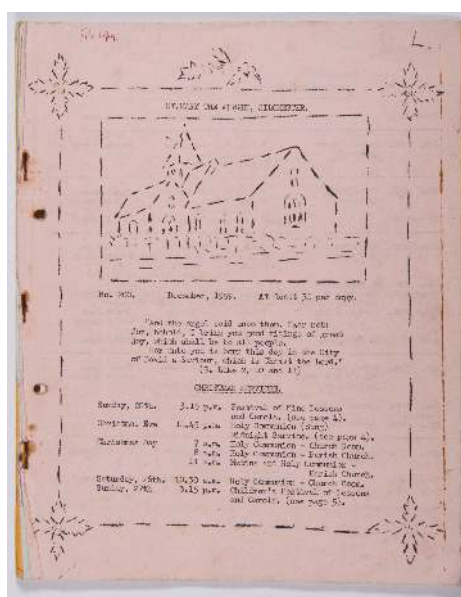 L.
ST. MARY THE VIRGIN, SILCHESTER.
No. December, 1959. At least 3d per copy.
"And the angel said unto them, Fear not:
for, behold, I bring you good tidings of great
joy, which shall be to all people.
For unto you is born this day in the City
of David a Saviour, which is Christ the Lord."
(S. Luke 2, 10 and 11)
CHRISTMAS SERVICES.
Sunday, 20th. 3.15 p.m. Festival of Nine Lessons
and Carols. (see page 4).
Christmas Eve 11.45 p.m. Holy Communion (Sung)
Midnight Service. (see page 4).
Christmas Day 7 a.m. Holy Communion - Church Room.
8 a.m. Holy Communion - Parish Church.
11 a.m. Matins and Holy Communion -
Parish Church.
Saturday, 26th. 10.30 a.m. Holy Communion - Church Room.
Sunday, 27th. 3.15 p.m. Children's Festival of Lessons
and Carols. (see page 5).